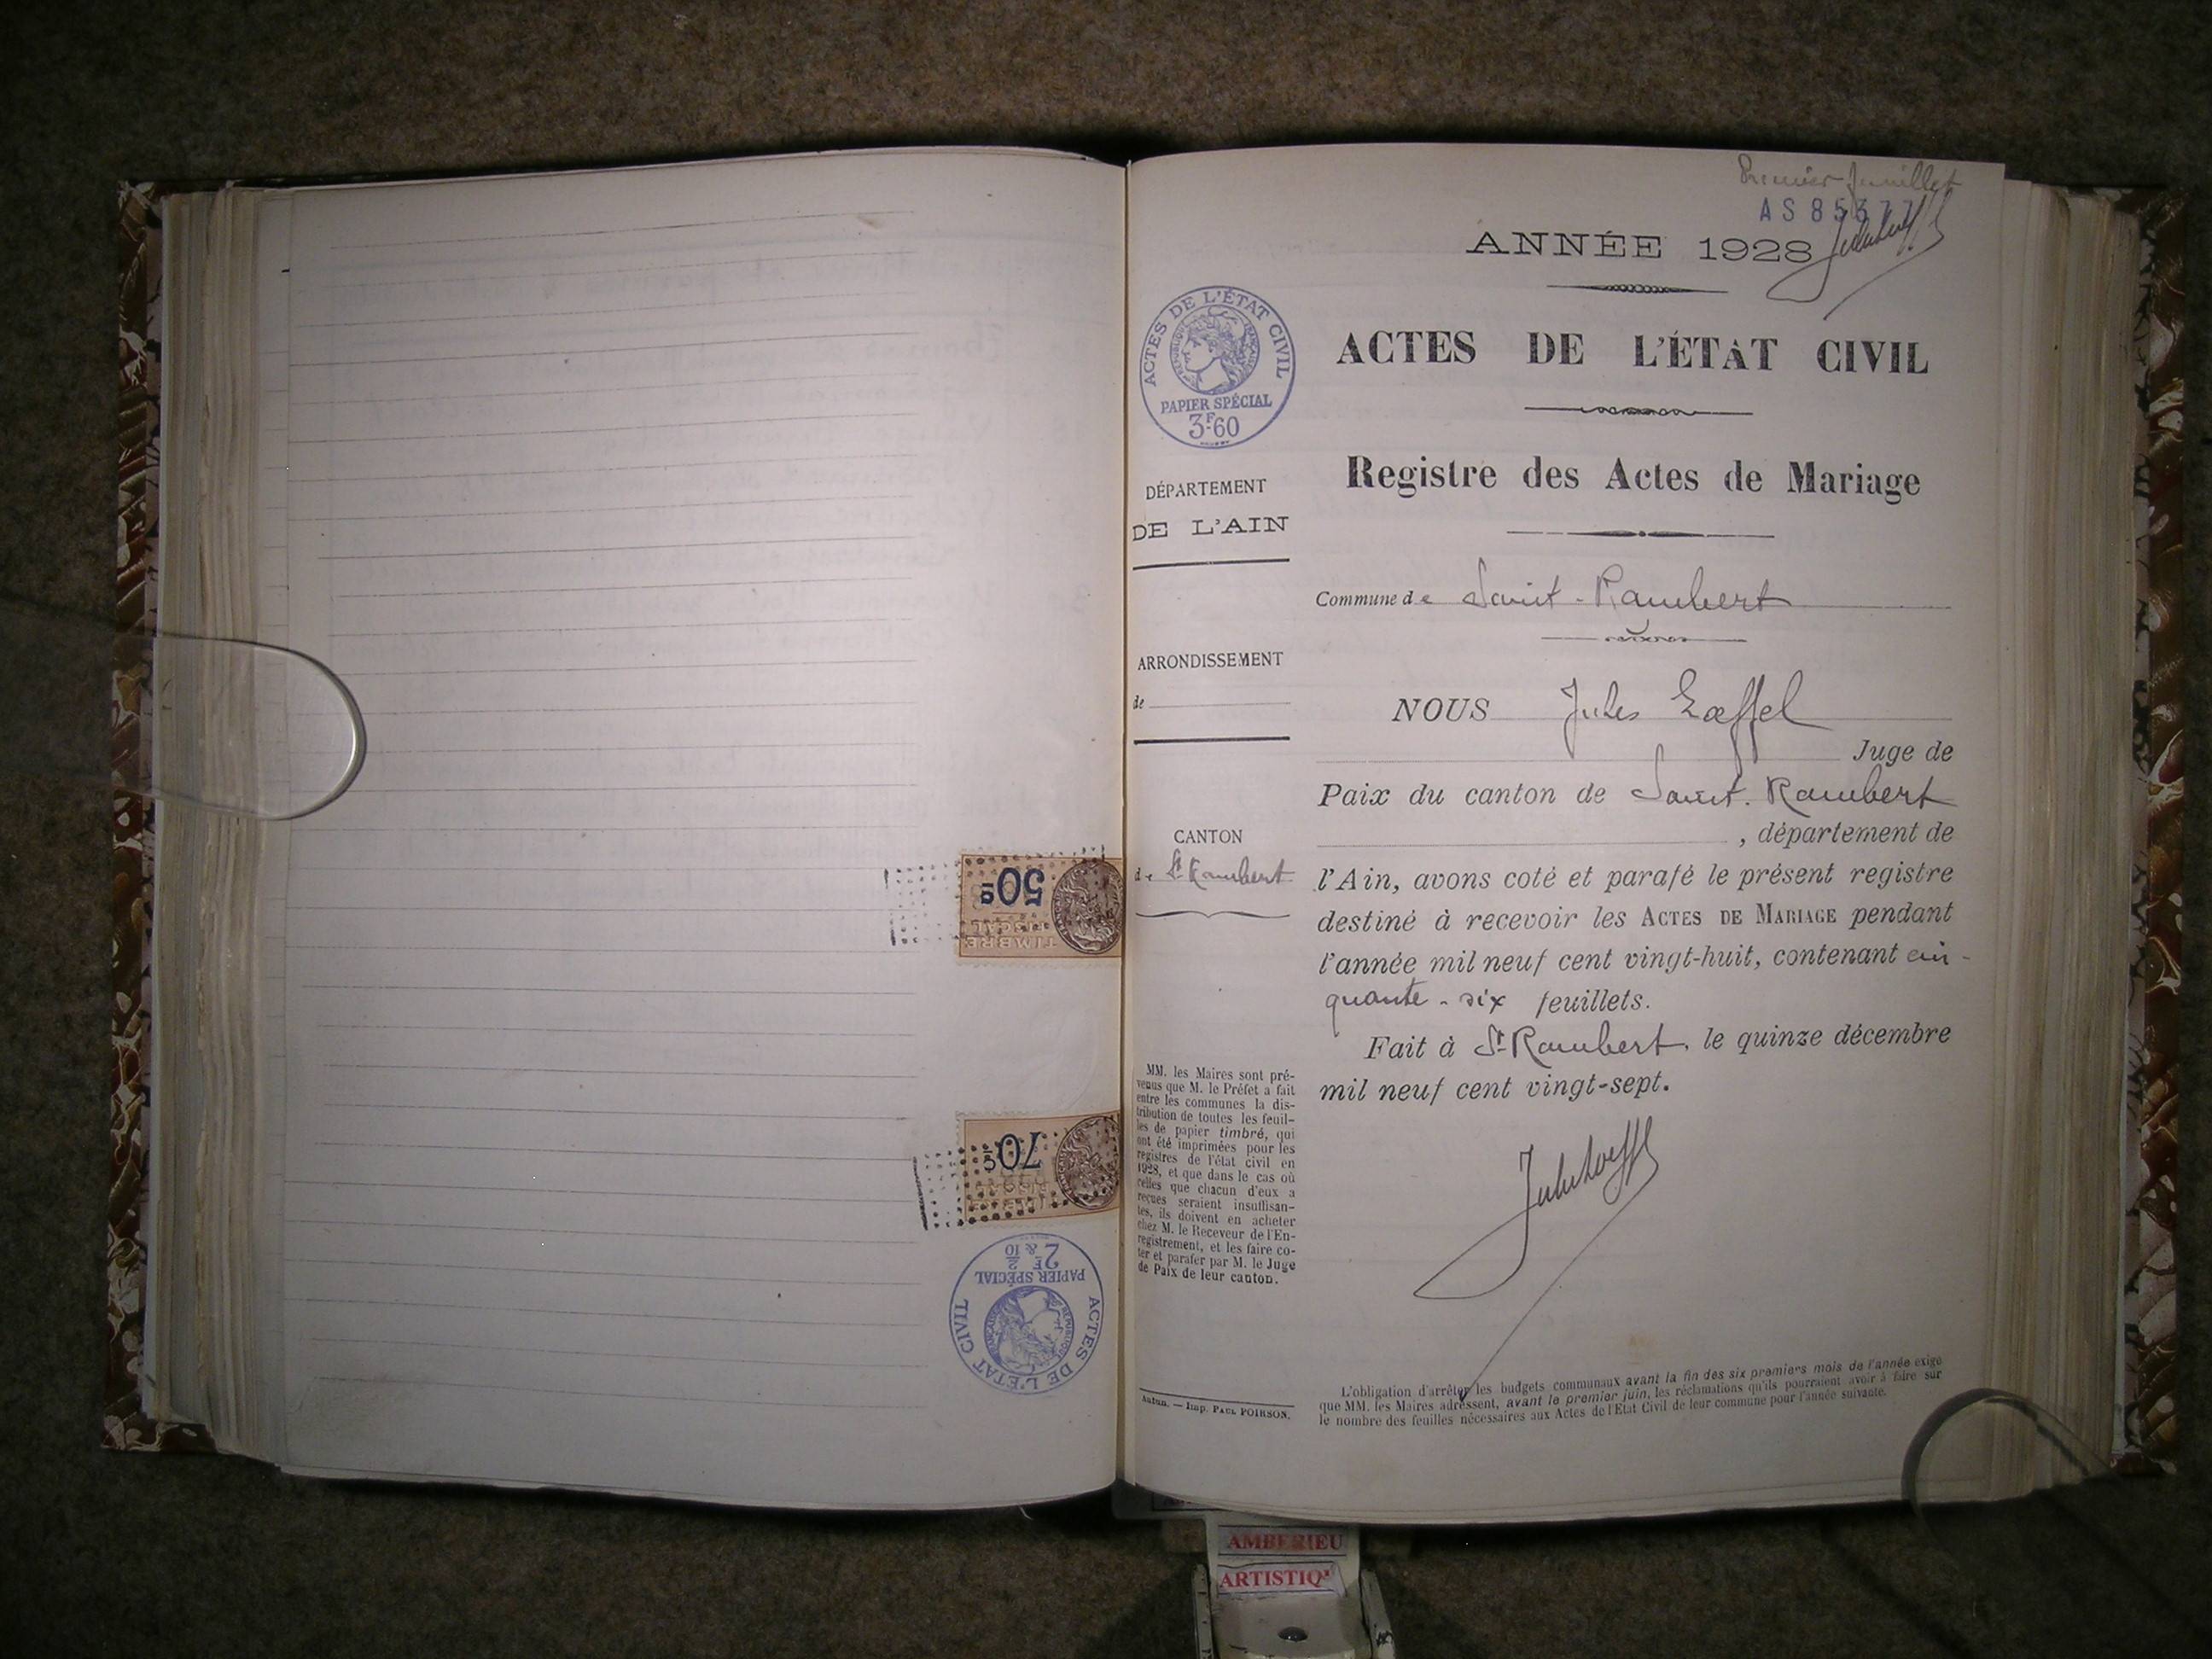 50c
TIMBRE
FISCAL
70c
TIMBRE
FISCAL
ACTES DE L'ÉTAT CIVIL
RÉPUBLIQUE FRANÇAISE
PAPIER SPÉCIAL
2F & 2/10
Premier feuillet
AS 85377
ANNÉE 1928
ACTES DE L'ÉTAT CIVIL
RÉPUBLIQUE FRANÇAISE
PAPIER SPÉCIAL
3F.60
ACTES DE L'ÉTAT CIVIL
Registre des Actes de Mariage
DÉPARTEMENT
DE L'AIN
ARRONDISSEMENT
de
CANTON
de St Rambert
Commune de Saint-Rambert
NOUS Jules Lœffel
Juge de
Paix du canton de Saint-Rambert
, département de
l'Ain, avons coté et parafé le présent registre
destiné à recevoir les ACTES DE MARIAGE pendant
l'année mil neuf cent vingt-huit, contenant cin-
quante-six feuillets.
Fait à St-Rambert, le quinze décembre
mil neuf cent vingt-sept.
MM. les Maires sont pré-
venus que M. le Préfet a fait
entre les communes la dis-
tribution de toutes les feuil-
les de papier timbré, qui
ont été imprimées pour les
registres de l'état civil en
1928, et que dans le cas où
celles que chacun d'eux a
reçues seraient insuffisan-
tes, ils doivent en acheter
chez M. le Receveur de l'En-
registrement, et les faire co-
ter et parafer par M. le Juge
de Paix de leur canton.
Autun. — Imp. PAUL POIRSON.
L'obligation d'arrêter les budgets communaux avant la fin des six premiers mois de l'année exige
que MM. les Maires adressent, avant le premier juin, les réclamations qu'ils pourraient avoir à faire sur
le nombre des feuilles nécessaires aux Actes de l'Etat Civil de leur commune pour l'année suivante.
AMBERIEU
ARTISTIQ